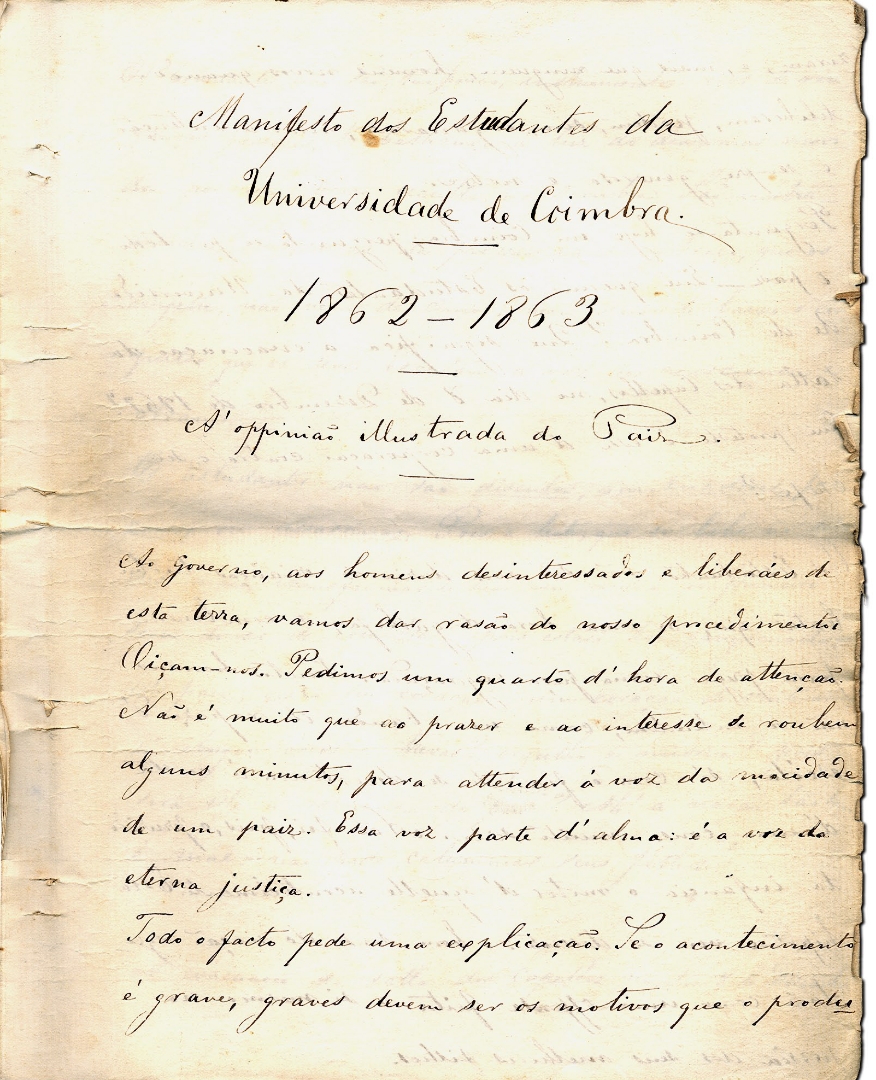 Manifesto dos Estudantes da
Universidade de Coimbra.
1862 – 1863
A' oppinião illustrada do Paiz.
Ao Governo, aos homens desinteressados e liberáes de
esta terra, vamos dar rasão do nosso procedimento.
Oiçam-nos. Pedimos um quarto d'hora de attenção.
Não é muito que ao prazer e ao interesse se roubem
alguns minutos, para attender á voz da mocidade
de um paiz. Essa voz parte d'alma: é a voz da
eterna justiça.
Todo o facto pede uma explicação. Se o acontecimento
é grave, graves devem ser os motivos que o produ